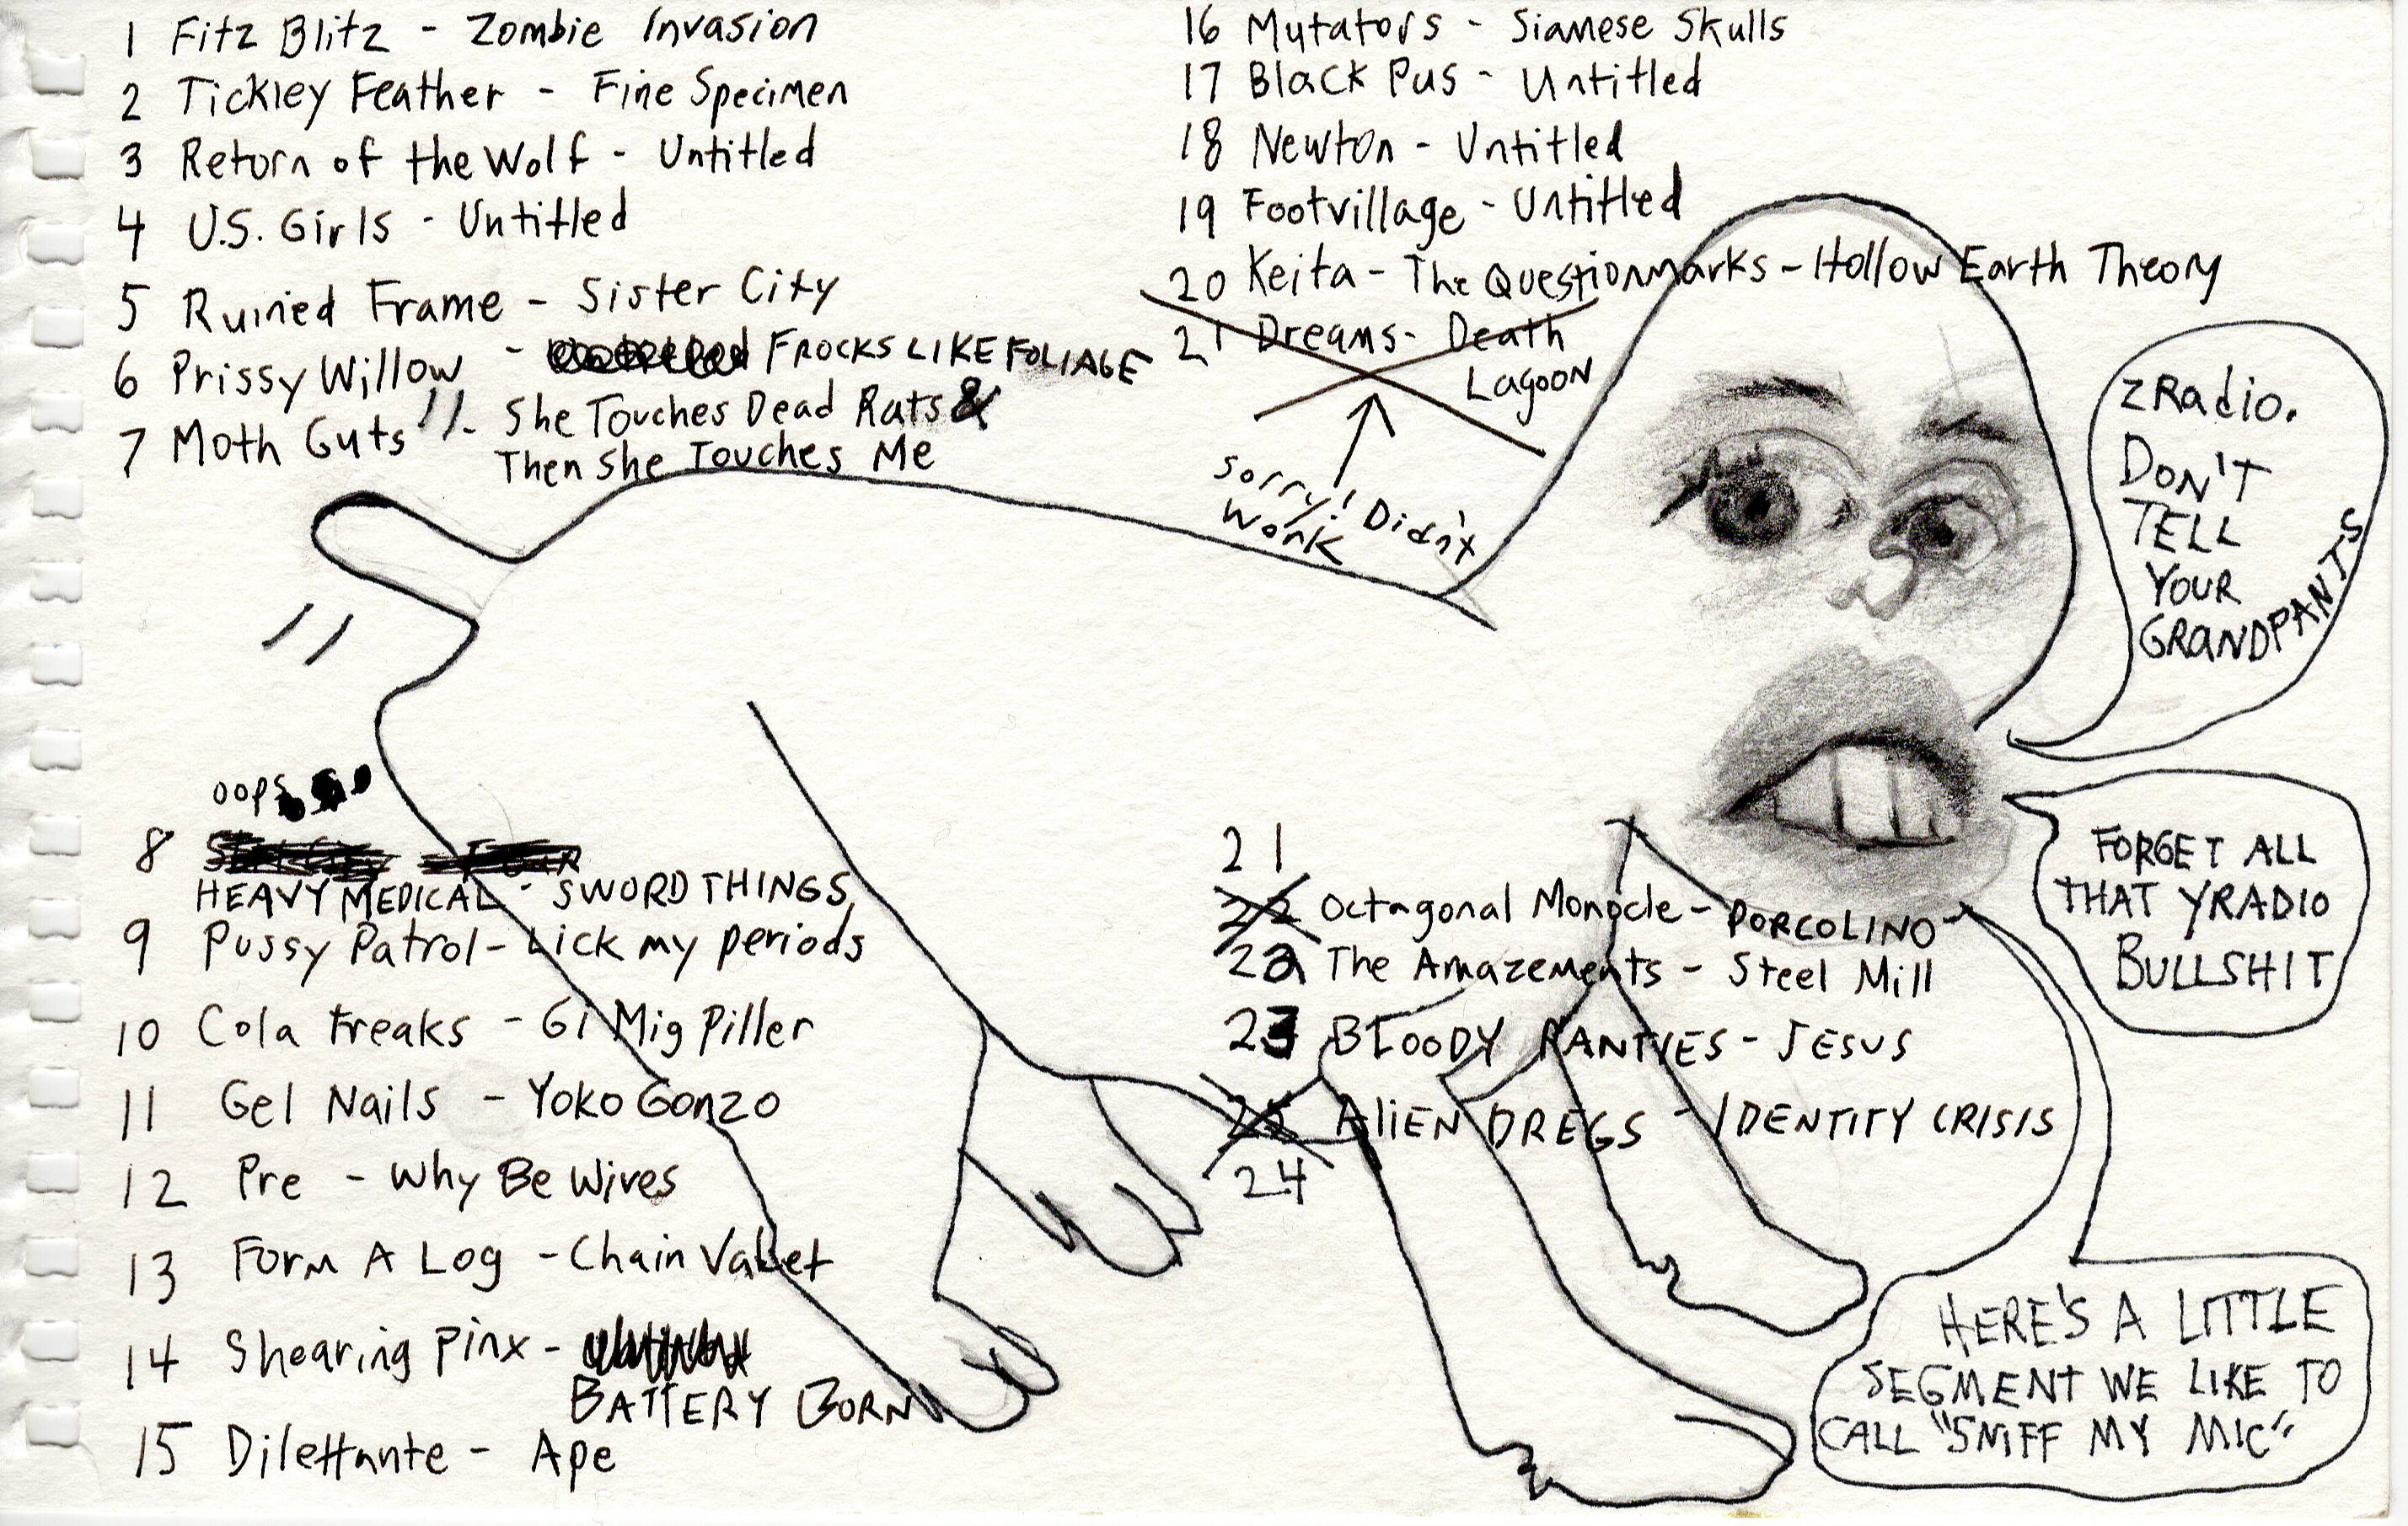 1 Fitz Blitz - Zombie Invasion
2 Tickley Feather - Fine Specimen
3 Return of the Wolf - Untitled
4 U.S. Girls - Untitled
5 Ruined Frame - Sister City
6 Prissy Willow - FROCKS LIKE FOLIAGE
7 Moth Guts - She Touches Dead Rats &
Then She Touches Me
oops
8
HEAVY MEDICAL - SWORD THINGS
9 Pussy Patrol - Lick my periods
10 Cola Freaks - Gi Mig Piller
11 Gel Nails - Yoko Gonzo
12 Pre - Why Be Wives
13 Form A Log - Chain Vallet
14 Shearing Pinx -
BATTERY BORN
15 Dilettante - Ape
16 Mutators - Siamese Skulls
17 Black Pus - Untitled
18 Newton - Untitled
19 Footvillage - Untitled
20 Keita - The Questionmarks - Hollow Earth Theory
21 Dreams - Death
Lagoon
Sorry! Didn't
Work
21
22 Octagonal Monocle - PORCOLINO
22 The Amazements - Steel Mill
23 BLOODY PANTIES - JESUS
25 Alien DREGS - IDENTITY CRISIS
24
ZRadio.
DON'T
TELL
YOUR
GRANDPANTS
FORGET ALL
THAT YRADIO
BULLSHIT
HERE'S A LITTLE
SEGMENT WE LIKE TO
CALL "SNIFF MY MIC"